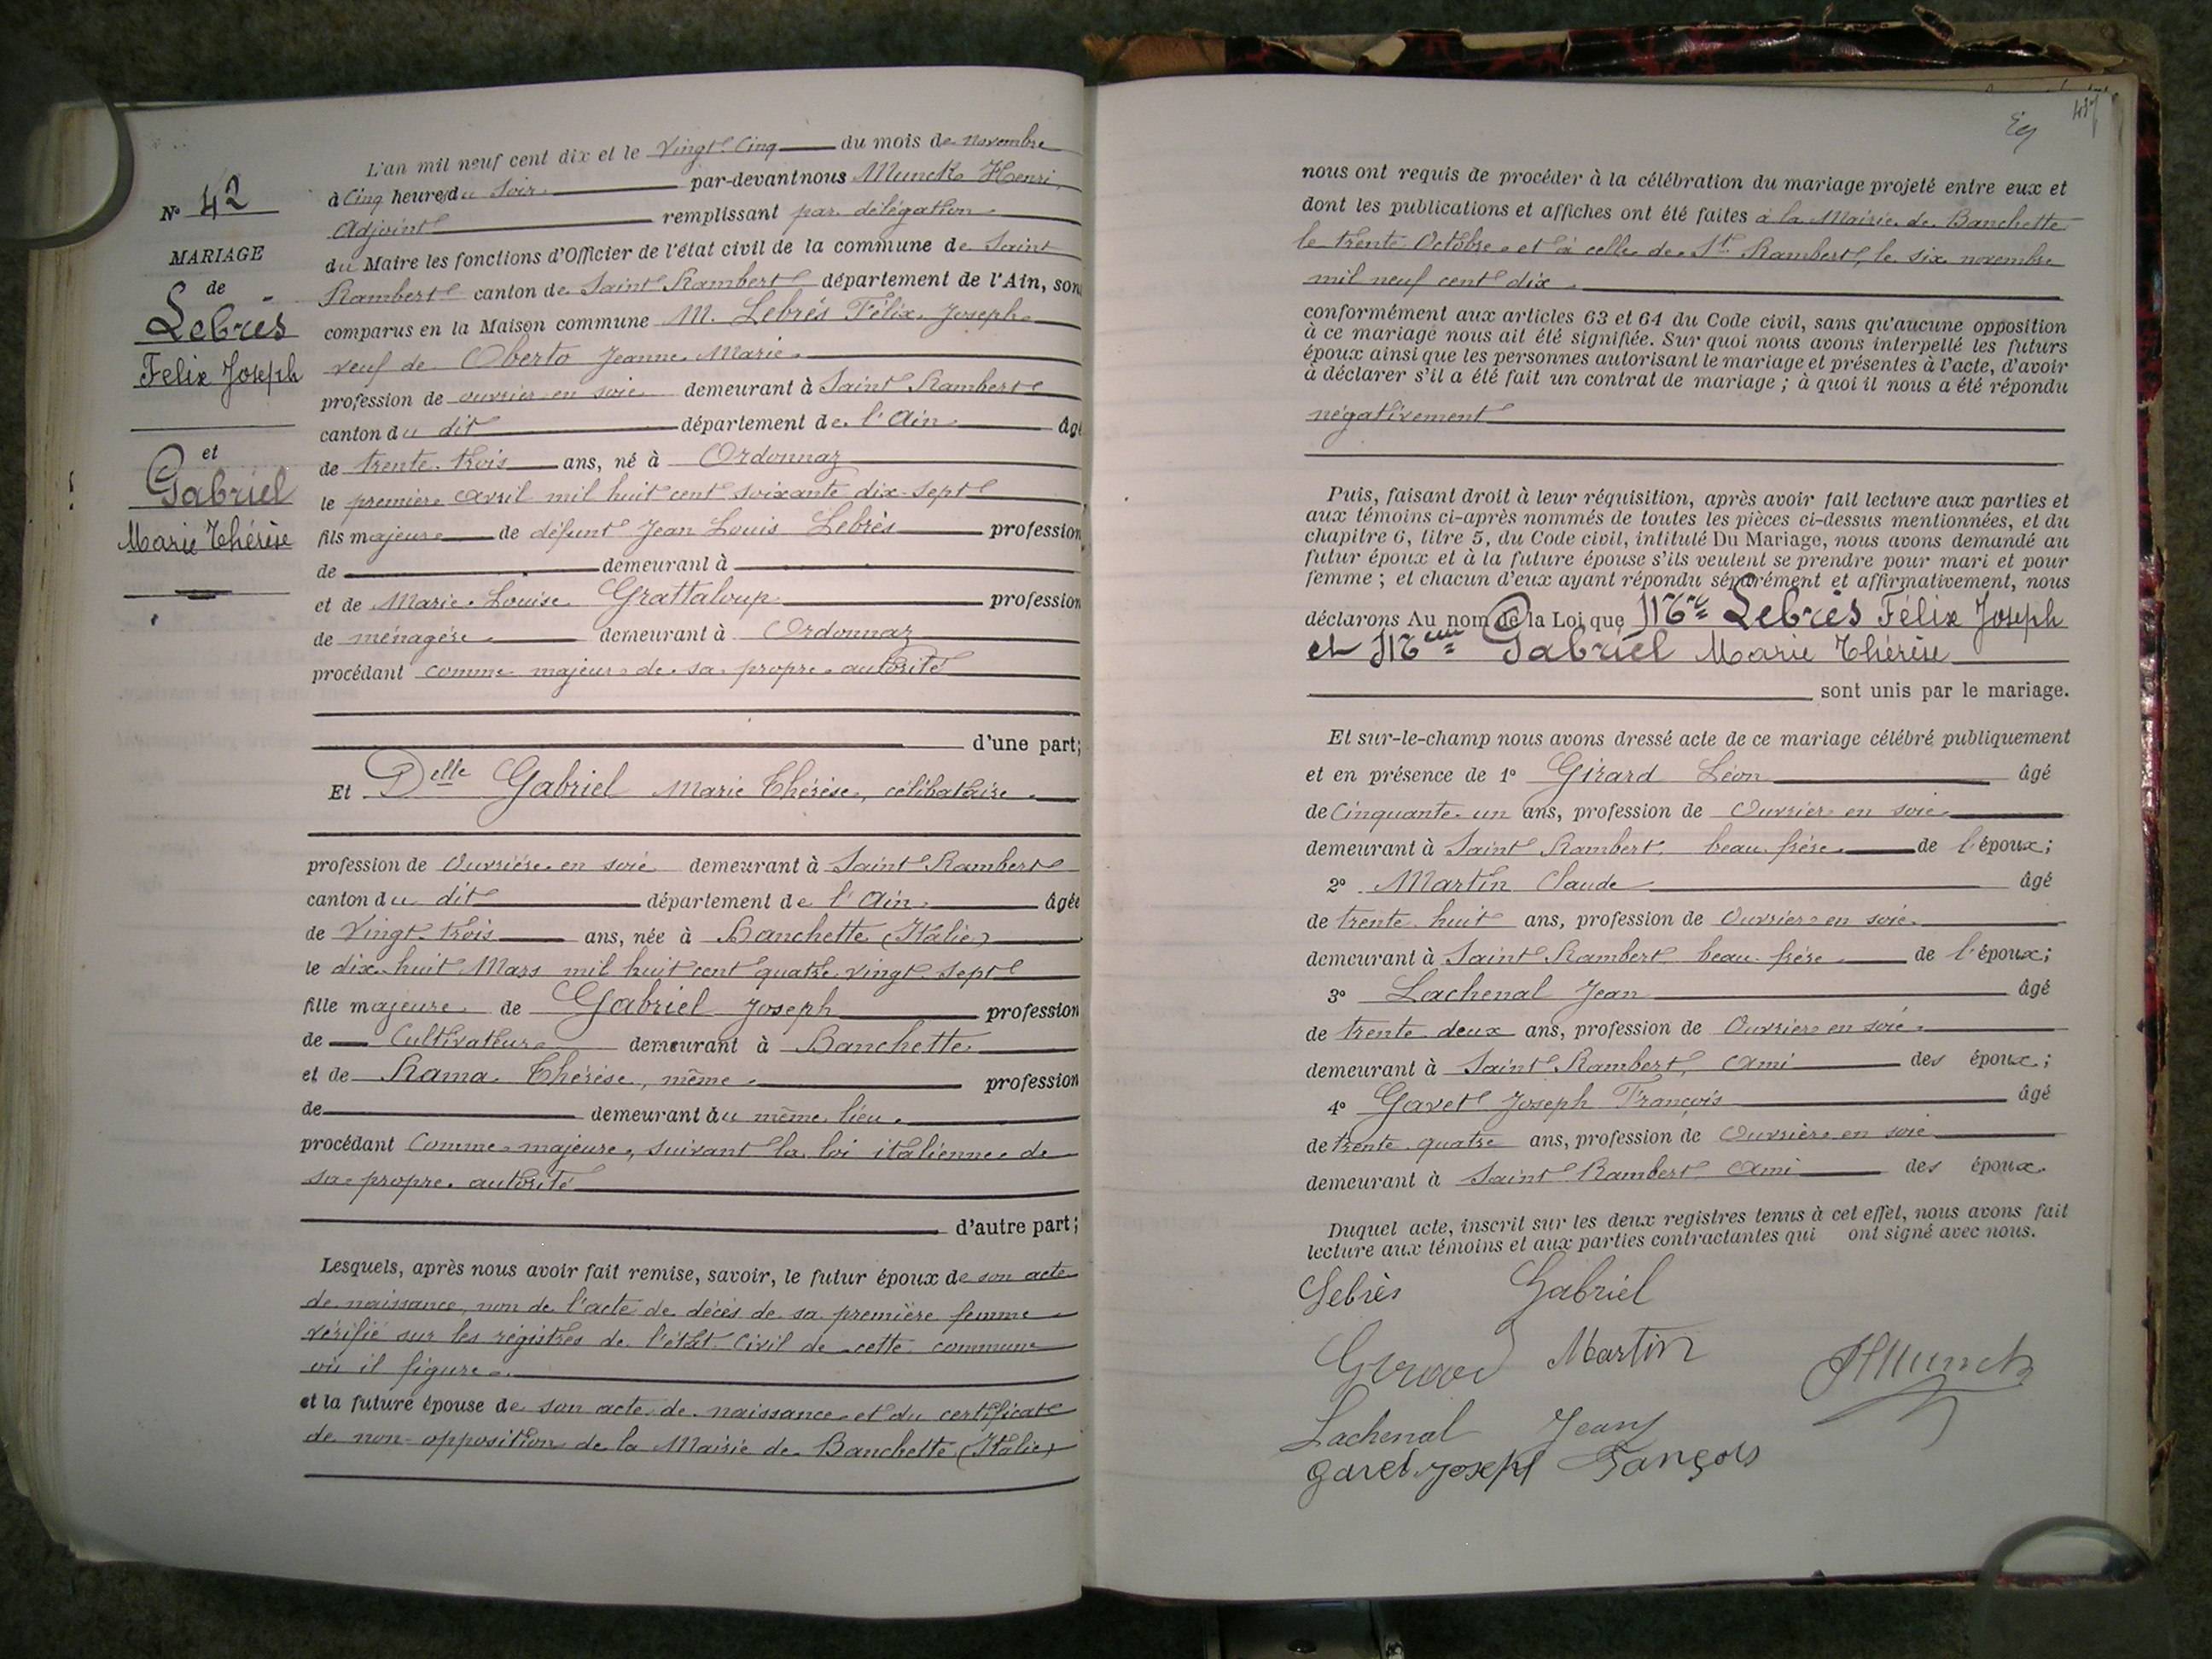 N° 42
MARIAGE
de
Lebrès
Felix Joseph
et
Gabriel
Marie Thérèse
L'an mil neuf cent dix et le Vingt Cinq du mois de novembre
à Cinq heures du Soir par-devant nous Munck Henri,
Adjoint remplissant par délégation
du Maire les fonctions d'Officier de l'état civil de la commune de Saint
Rambert canton de Saint Rambert département de l'Ain, sont
comparus en la Maison commune M. Lebrés Félix Joseph
veuf de Oberto Jeanne Marie
profession de ouvrier en soie demeurant à Saint Rambert
canton du dit département de l'Ain âgé
de trente trois ans, né à Ordonnaz
le premier avril mil huit cent soixante dix-sept
fils majeur de défunt Jean Louis Lebrès profession
de demeurant à
et de Marie Louise Grattaloup profession
de ménagère demeurant à Ordonnaz
procédant comme majeur de sa propre autorité
d'une part;
Et Delle Gabriel Marie Thérèse, célibataire
profession de Ouvrière en soie demeurant à Saint Rambert
canton du dit département de l'Ain âgée
de Vingt trois ans, née à Banchette (Italie)
le dix huit Mars mil huit cent quatre vingt sept
fille majeure de Gabriel Joseph profession
de Cultivateur demeurant à Banchette
et de Rama Thérèse, même profession
de demeurant au même lieu
procédant Comme majeure, suivant la loi italienne de
sa propre autorité
d'autre part;
Lesquels, après nous avoir fait remise, savoir, le futur époux de son acte
de naissance, non de l'acte de décès de sa première femme
vérifié sur les régistres de l'état Civil de cette commune
où il figure
et la future épouse de son acte de naissance et du certificat
de non-opposition de la Mairie de Banchette (Italie)
437
nous ont requis de procéder à la célébration du mariage projeté entre eux et
dont les publications et affiches ont été faites à la Mairie de Banchette
le trente Octobre et à celle de St Rambert, le six novembre
mil neuf cent dix
conformément aux articles 63 et 64 du Code civil, sans qu'aucune opposition
à ce mariage nous ait été signifiée. Sur quoi nous avons interpellé les futurs
époux ainsi que les personnes autorisant le mariage et présentes à l'acte, d'avoir
à déclarer s'il a été fait un contrat de mariage; à quoi il nous a été répondu
négativement
Puis, faisant droit à leur réquisition, après avoir fait lecture aux parties et
aux témoins ci-après nommés de toutes les pièces ci-dessus mentionnées, et du
chapitre 6, titre 5, du Code civil, intitulé Du Mariage, nous avons demandé au
futur époux et à la future épouse s'ils veulent se prendre pour mari et pour
femme; et chacun d'eux ayant répondu séparément et affirmativement, nous
déclarons Au nom de la Loi que Lebrès Félix Joseph
et Gabriel Marie Thérèse
sont unis par le mariage.
Et sur-le-champ nous avons dressé acte de ce mariage célébré publiquement
et en présence de 1° Girard Léon âgé
de Cinquante un ans, profession de Ouvrier en soie
demeurant à Saint Rambert beau frère de l'époux;
2° Martin Claude âgé
de trente huit ans, profession de Ouvrier en soie
demeurant à Saint Rambert beau-frère de l'époux;
3° Lachenal Jean âgé
de trente deux ans, profession de Ouvrier en soie
demeurant à Saint Rambert, ami des époux;
4° Gavet Joseph François âgé
de trente quatre ans, profession de Ouvrier en soie
demeurant à Saint Rambert ami des époux.
Duquel acte, inscrit sur les deux registres tenus à cet effet, nous avons fait
lecture aux témoins et aux parties contractantes qui ont signé avec nous.
Lebrès Gabriel
Girard Martin HMunck
Lachenal Jean
gavet joseph François